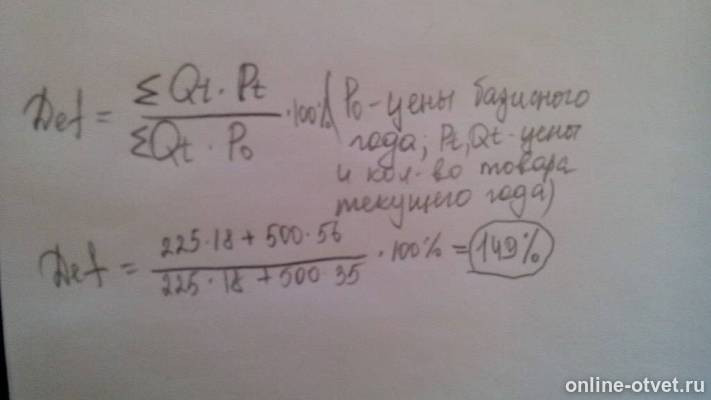 Def = ΣQt·Pt / ΣQt·P₀ ·100% (P₀-цены базисного
года; Pt, Qt-цены
и кол-во товара
текущего года)
Def = 225·18+500·56 / 225·18+500·35 ·100% = 149%
online-otvet.ru